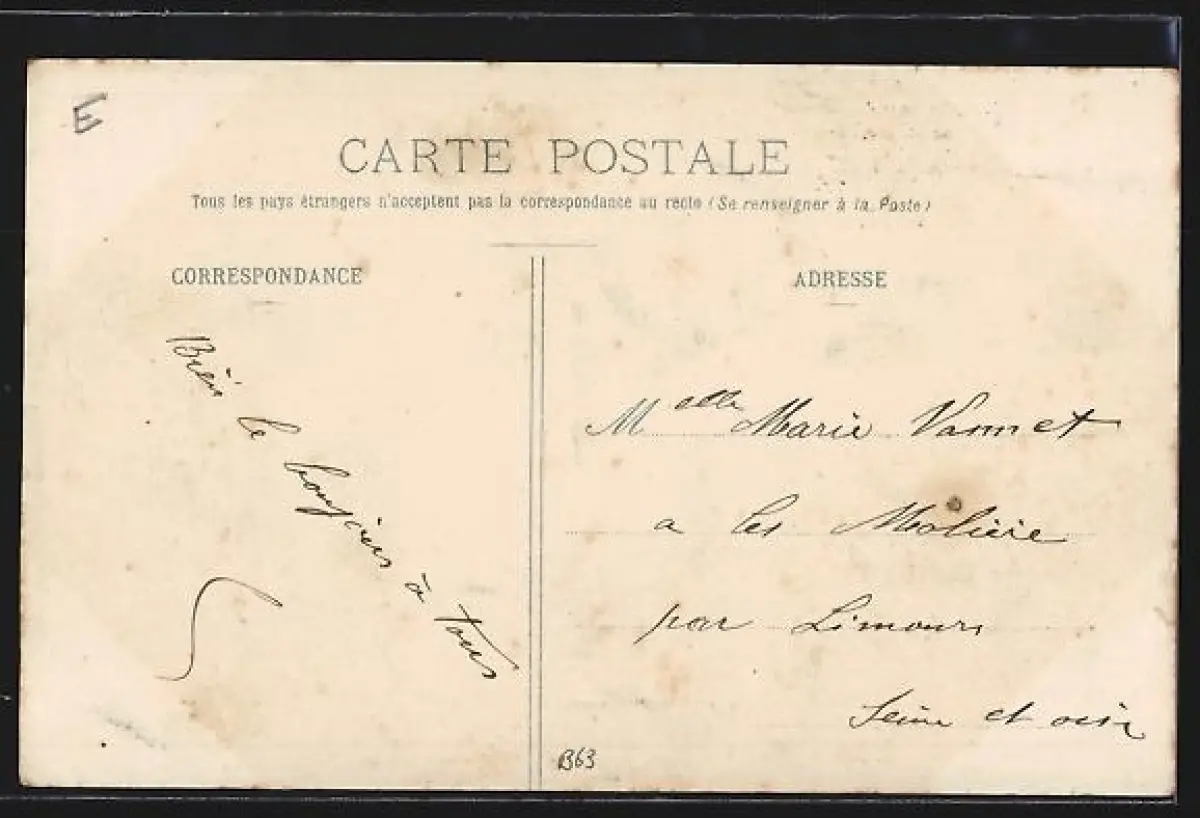 E
CARTE POSTALE
Tous les pays étrangers n'acceptent pas la correspondance au recto (Se renseigner à la Poste)
CORRESPONDANCE
Bien le bonjour à tous
ADRESSE
Melle Marie Vannet
a les Molière
par Limours
Seine et oise
B63